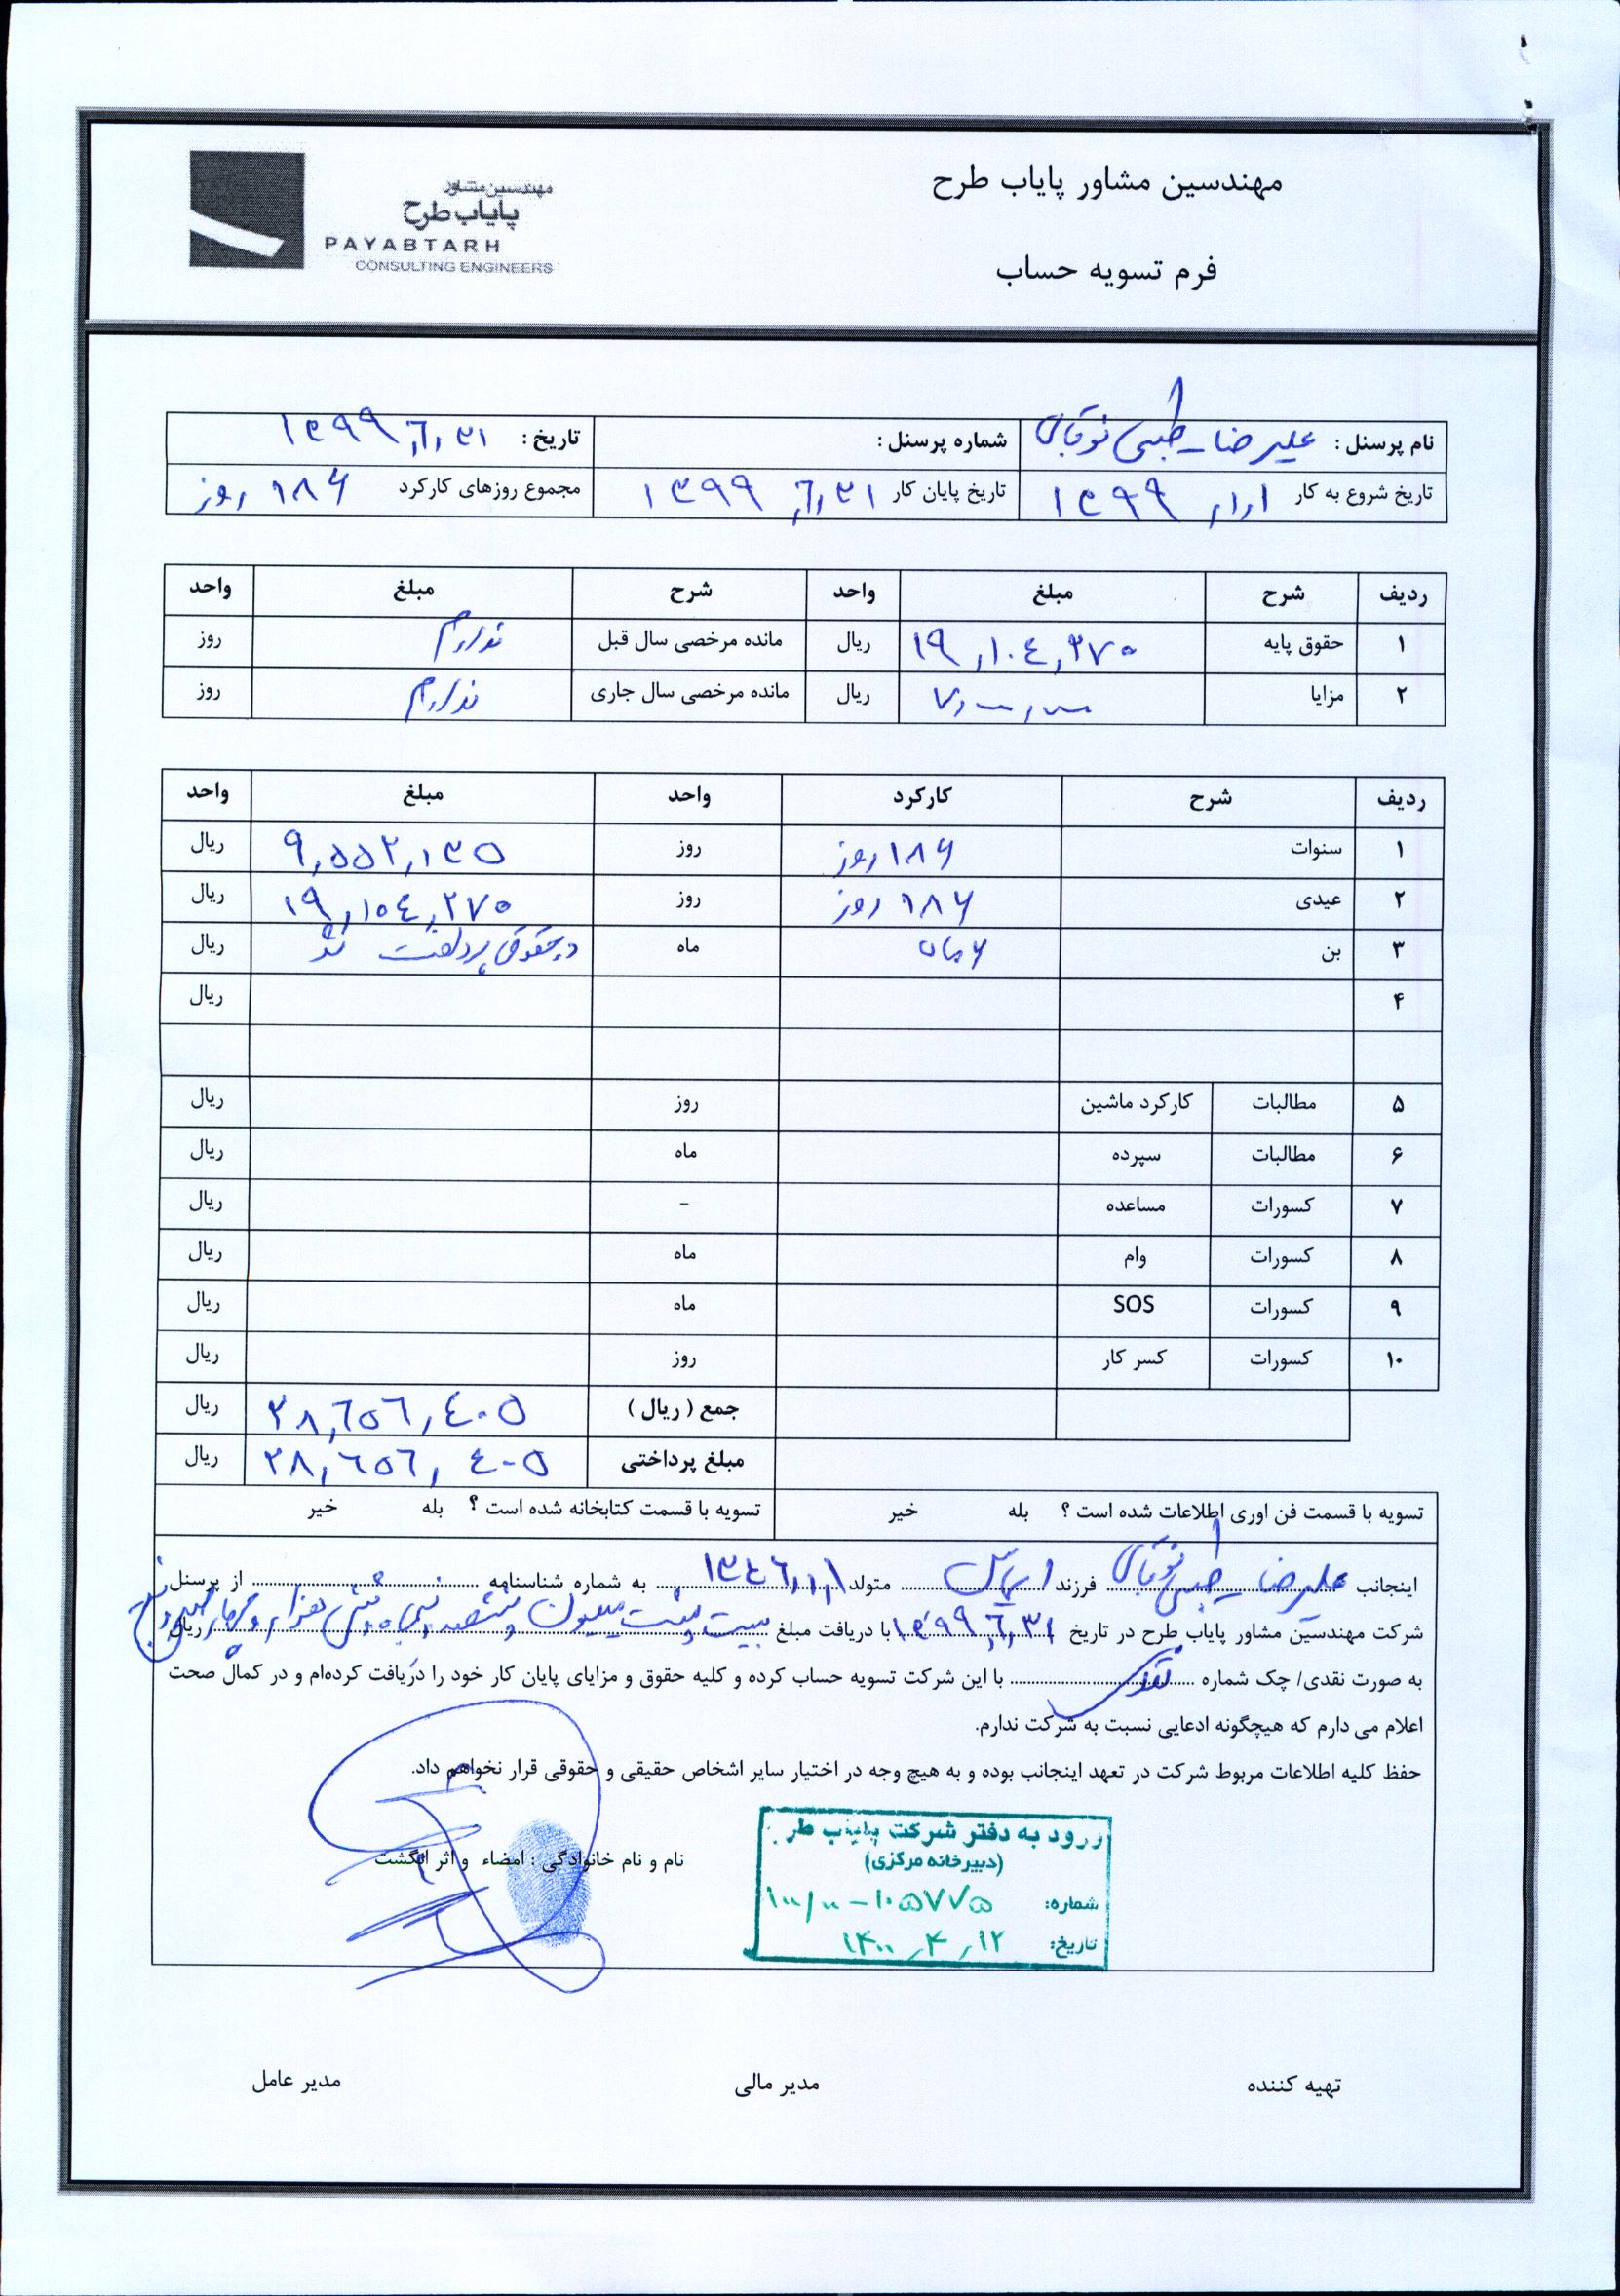 مهندسین مشاور پایاب طرح
مهندسین مشاور
پایاب طرح
PAYABTARH
CONSULTING ENGINEERS
فرم تسویه حساب
نام پرسنل : علیرضا طبسی نوقابی شماره پرسنل : تاریخ : ۱۳۹۹,۶,۳۱
تاریخ شروع به کار ۱۳۹۹,۱,۱ تاریخ پایان کار ۱۳۹۹,۶,۳۱ مجموع روزهای کارکرد ۱۸۶ روز
ردیف شرح مبلغ واحد شرح مبلغ واحد
۱ حقوق پایه ۱۹,۱۰۴,۲۷۰ ریال مانده مرخصی سال قبل ندارم روز
۲ مزایا ریال مانده مرخصی سال جاری ندارم روز
ردیف شرح کارکرد واحد مبلغ واحد
۱ سنوات ۱۸۶ روز روز ۹,۵۵۲,۱۳۵ ریال
۲ عیدی ۱۸۶ روز روز ۱۹,۱۰۴,۲۷۰ ریال
۳ بن ۶ ماه ماه در حقوق پرداخت شد ریال
۴ ریال
۵ مطالبات کارکرد ماشین روز ریال
۶ مطالبات سپرده ماه ریال
۷ کسورات مساعده - ریال
۸ کسورات وام ماه ریال
۹ کسورات SOS ماه ریال
۱۰ کسورات کسر کار روز ریال
جمع ( ریال ) ۲۸,۶۵۶,۴۰۵ ریال
مبلغ پرداختی ۲۸,۶۵۶,۴۰۵ ریال
تسویه با قسمت فن اوری اطلاعات شده است ؟ بله خیر تسویه با قسمت کتابخانه شده است ؟ بله خیر
اینجانب علیرضا طبسی نوقابی فرزند متولد ۱۳۴۶,۱,۱ به شماره شناسنامه ........ از پرسنل
شرکت مهندسین مشاور پایاب طرح در تاریخ ۱۳۹۹,۶,۳۱ با دریافت مبلغ بیست و هشت میلیون و ششصد و پنجاه و شش هزار و چهارصد و پنج ریال
به صورت نقدی/ چک شماره نقدی با این شرکت تسویه حساب کرده و کلیه حقوق و مزایای پایان کار خود را دریافت کرده‌ام و در کمال صحت
اعلام می دارم که هیچگونه ادعایی نسبت به شرکت ندارم.
حفظ کلیه اطلاعات مربوط شرکت در تعهد اینجانب بوده و به هیچ وجه در اختیار سایر اشخاص حقیقی و حقوقی قرار نخواهم داد.
نام و نام خانوادگی : امضاء و اثر انگشت
ورود به دفتر شرکت پایاب طر
(دبیرخانه مرکزی)
شماره: ۱۰۰/۰۰-۱۰۵۷۷۵
تاریخ: ۱۴۰۰,۴,۱۲
تهیه کننده مدیر مالی مدیر عامل